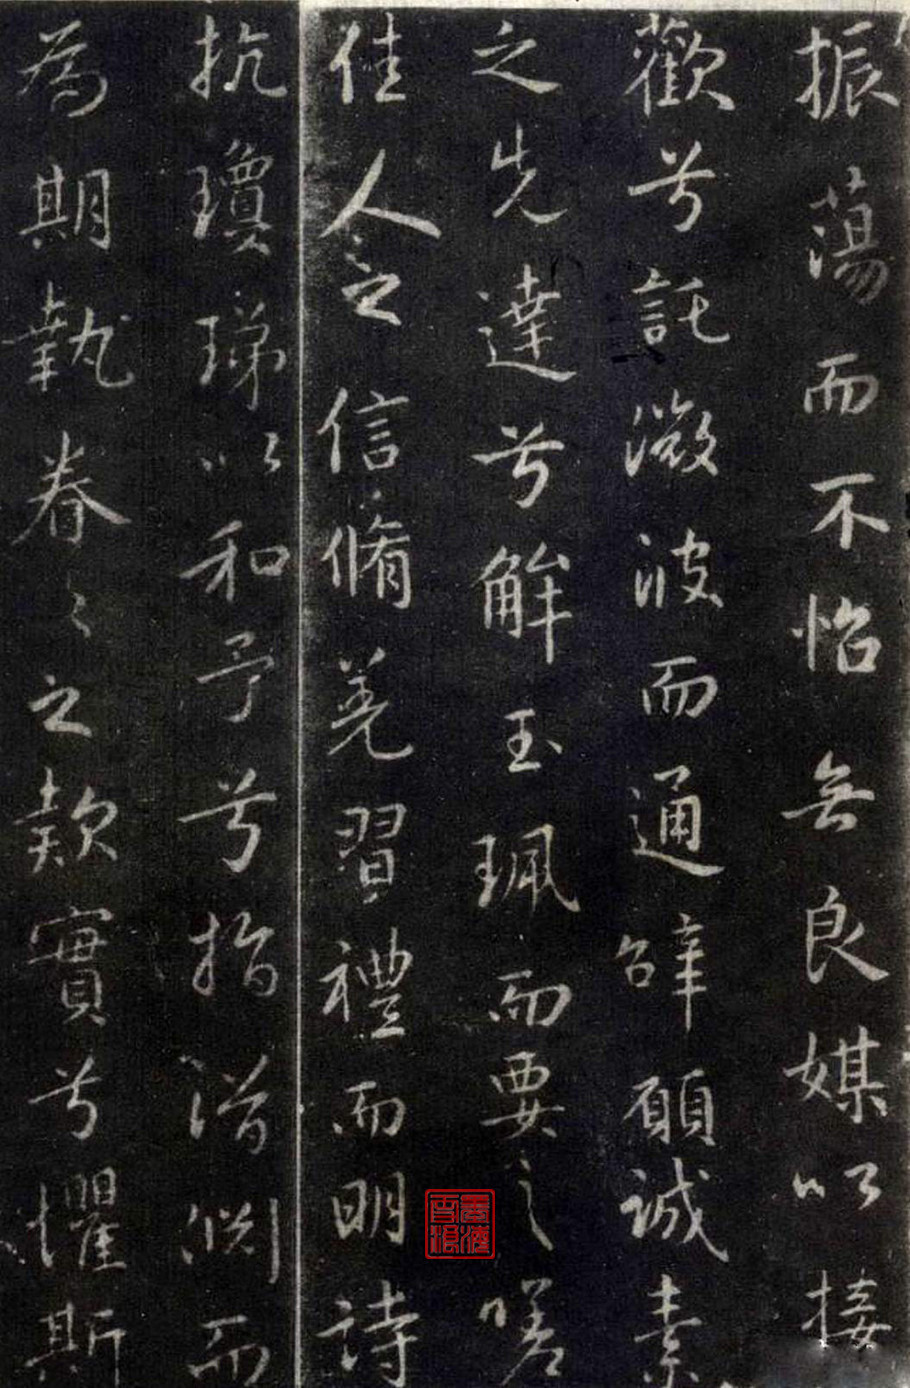 振蕩而不怡無良媒以接
歡兮託微波而通辭願誠素
之先達兮解玉珮而要之嗟
佳人之信脩羌習禮而明詩
抗瓊珶以和予兮指潛淵而
為期執眷〻之款實兮懼斯